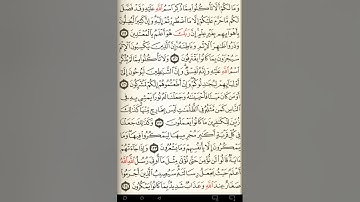 وَمَا لَكُمْ أَلَّا تَأْكُلُوا۟ مِمَّا ذُكِرَ ٱسْمُ ٱللَّهِ عَلَيْهِ وَقَدْ فَصَّلَ
لَكُم مَّا حَرَّمَ عَلَيْكُمْ إِلَّا مَا ٱضْطُرِرْتُمْ إِلَيْهِ وَإِنَّ كَثِيرًا لَّيُضِلُّونَ
بِأَهْوَآئِهِم بِغَيْرِ عِلْمٍ إِنَّ رَبَّكَ هُوَ أَعْلَمُ بِٱلْمُعْتَدِينَ
وَذَرُوا۟ ظَـٰهِرَ ٱلْإِثْمِ وَبَاطِنَهُۥٓ إِنَّ ٱلَّذِينَ يَكْسِبُونَ ٱلْإِثْمَ
سَيُجْزَوْنَ بِمَا كَانُوا۟ يَقْتَرِفُونَ وَلَا تَأْكُلُوا۟ مِمَّا لَمْ يُذْكَرِ
ٱسْمُ ٱللَّهِ عَلَيْهِ وَإِنَّهُۥ لَفِسْقٌ وَإِنَّ ٱلشَّيَـٰطِينَ لَيُوحُونَ إِلَىٰٓ
أَوْلِيَآئِهِمْ لِيُجَـٰدِلُوكُمْ وَإِنْ أَطَعْتُمُوهُمْ إِنَّكُمْ لَمُشْرِكُونَ
أَوَمَن كَانَ مَيْتًا فَأَحْيَيْنَـٰهُ وَجَعَلْنَا لَهُۥ نُورًا يَمْشِى بِهِۦ فِى
ٱلنَّاسِ كَمَن مَّثَلُهُۥ فِى ٱلظُّلُمَـٰتِ لَيْسَ بِخَارِجٍ مِّنْهَا كَذَٰلِكَ
زُيِّنَ لِلْكَـٰفِرِينَ مَا كَانُوا۟ يَعْمَلُونَ وَكَذَٰلِكَ جَعَلْنَا
فِى كُلِّ قَرْيَةٍ أَكَـٰبِرَ مُجْرِمِيهَا لِيَمْكُرُوا۟ فِيهَا وَمَا
يَمْكُرُونَ إِلَّا بِأَنفُسِهِمْ وَمَا يَشْعُرُونَ وَإِذَا جَآءَتْهُمْ
ءَايَةٌ قَالُوا۟ لَن نُّؤْمِنَ حَتَّىٰ نُؤْتَىٰ مِثْلَ مَآ أُوتِىَ رُسُلُ ٱللَّهِ ٱللَّهُ
أَعْلَمُ حَيْثُ يَجْعَلُ رِسَالَتَهُۥ سَيُصِيبُ ٱلَّذِينَ أَجْرَمُوا۟
صَغَارٌ عِندَ ٱللَّهِ وَعَذَابٌ شَدِيدٌۢ بِمَا كَانُوا۟ يَمْكُرُونَ